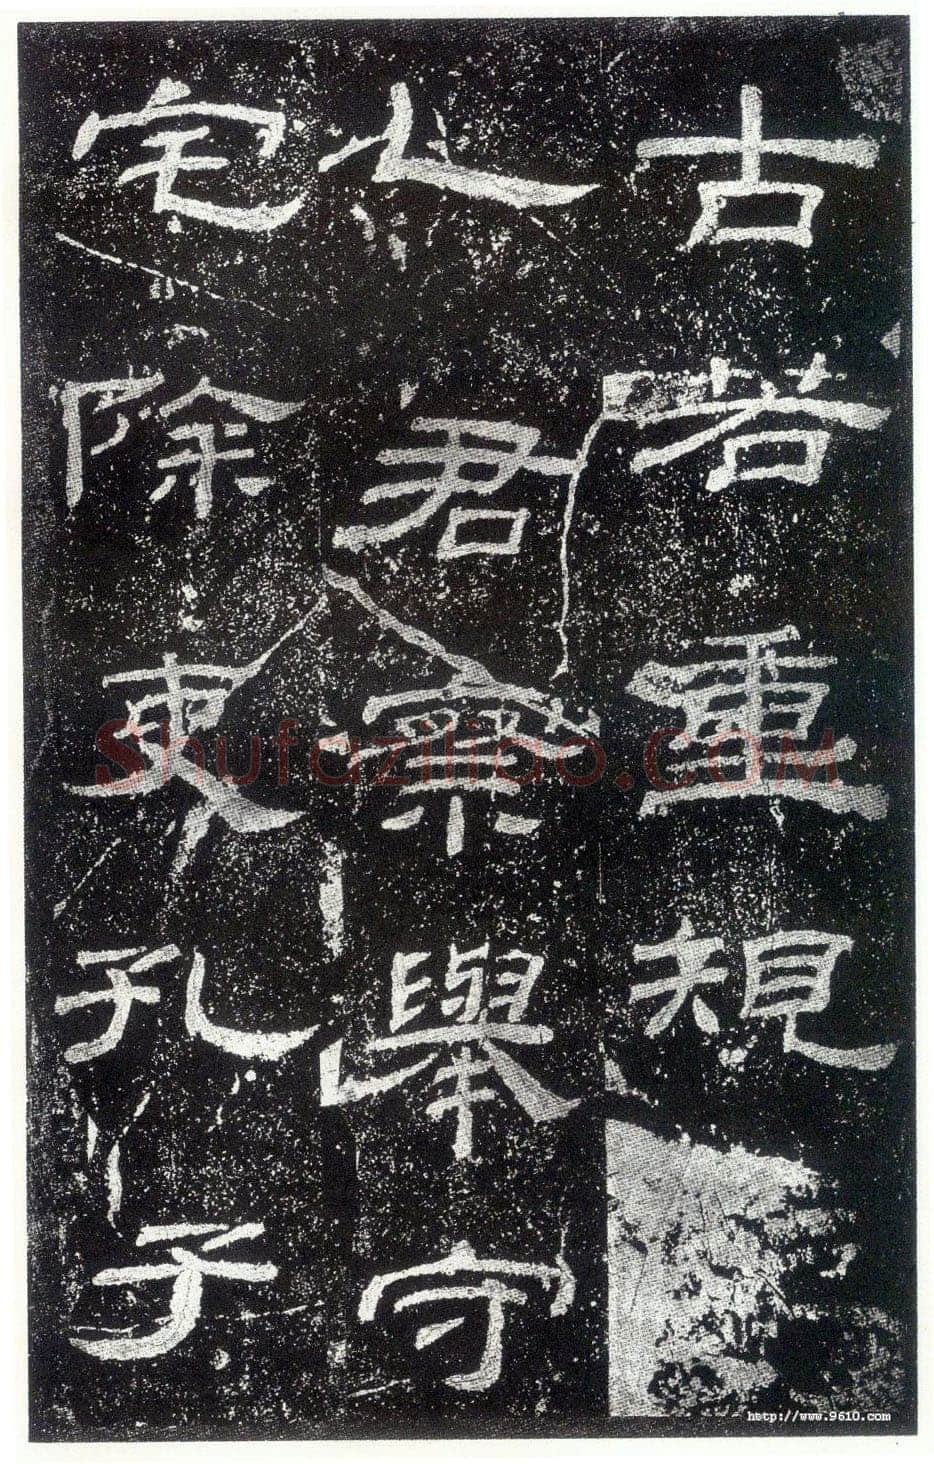 古若重規
人君無舉守
宅除吏孔子
Shufaziliao.COM
http://www.9610.com